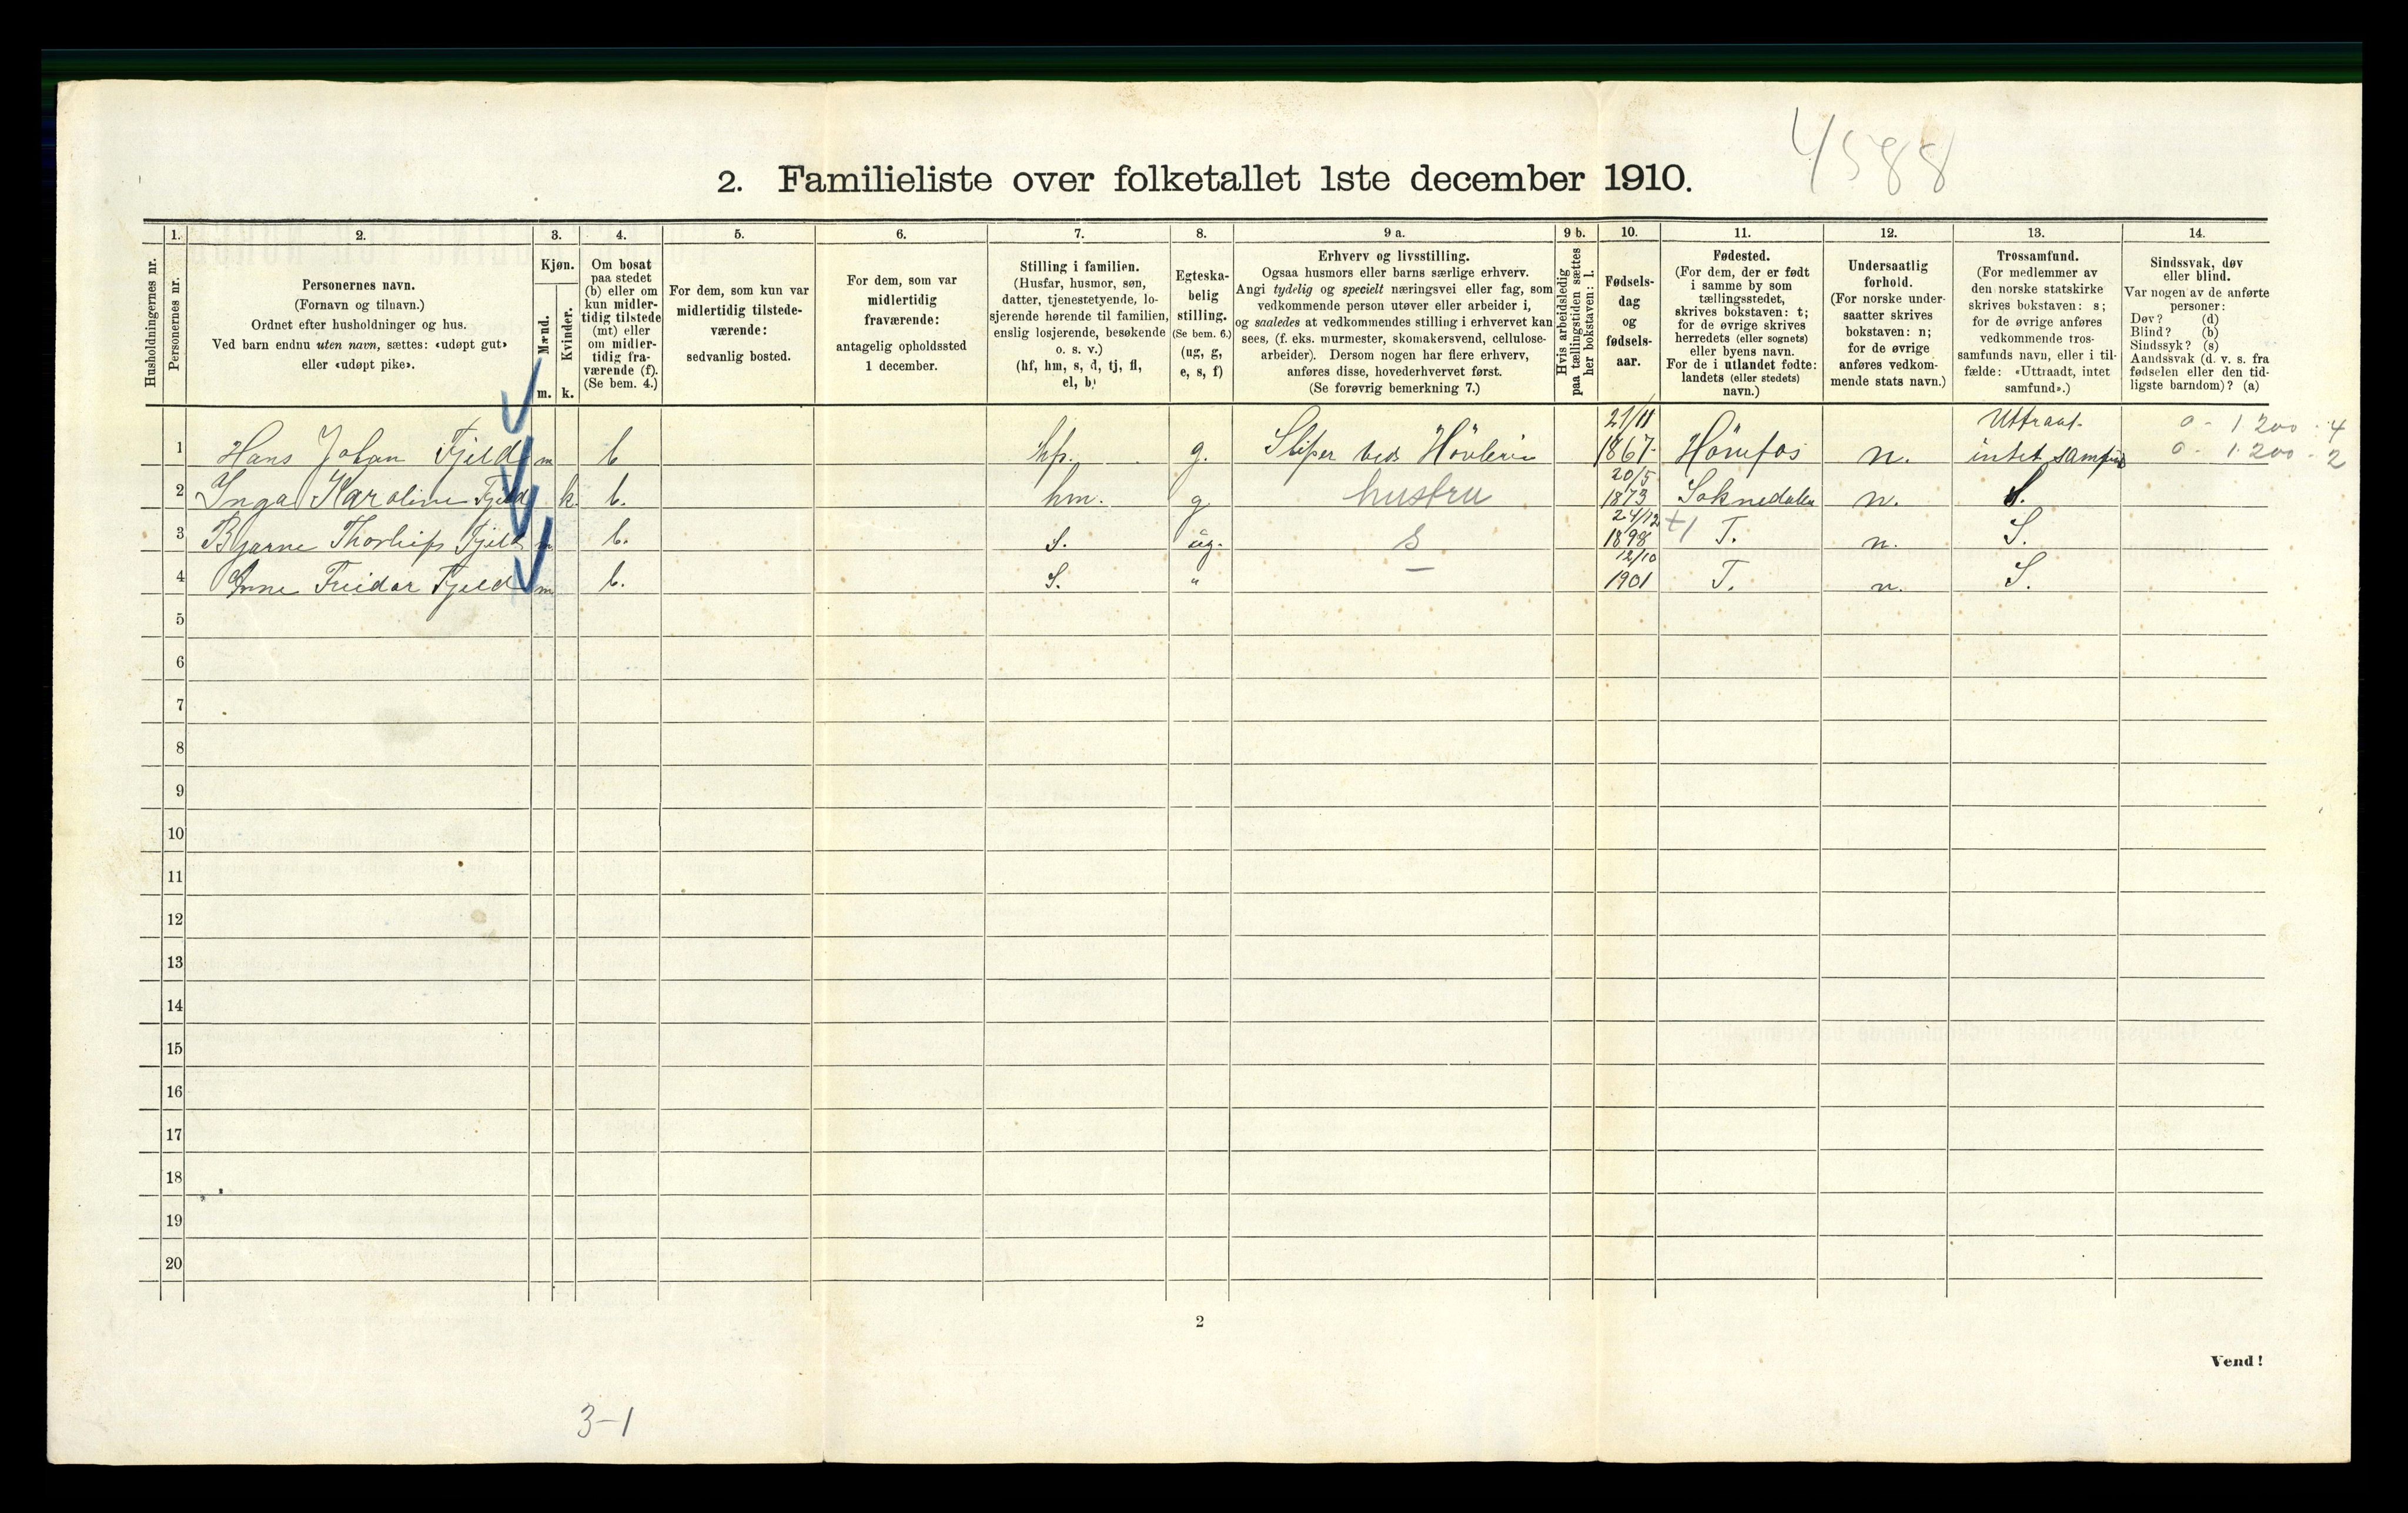 4588
2. Familieliste over folketallet 1ste december 1910.
Husholdningernes nr.
1.
Personernes nr.
2.
Personernes navn.
(Fornavn og tilnavn.)
Ordnet efter husholdninger og hus.
Ved barn endnu uten navn, sættes: «udøpt gut»
eller «udøpt pike».
3.
Kjøn.
Mænd.
m.
Kvinder.
k.
4.
Om bosat
paa stedet
(b) eller om
kun midler-
tidig tilstede
(mt) eller
om midler-
tidig fra-
værende (f).
(Se bem. 4.)
5.
For dem, som kun var
midlertidig tilstede-
værende:
sedvanlig bosted.
6.
For dem, som var
midlertidig
fraværende:
antagelig opholdssted
1 december.
7.
Stilling i familien.
(Husfar, husmor, søn,
datter, tjenestetyende, lo-
sjerende hørende til familien,
enslig losjerende, besøkende
o. s. v.)
(hf, hm, s, d, tj, fl,
el, b)
8.
Egteska-
belig
stilling.
(Se bem. 6.)
(ug, g,
e, s, f)
9 a.
Erhverv og livsstilling.
Ogsaa husmors eller barns særlige erhverv.
Angi tydelig og specielt næringsvei eller fag, som
vedkommende person utøver eller arbeider i,
og saaledes at vedkommendes stilling i erhvervet kan
sees, (f. eks. murmester, skomakersvend, cellulose-
arbeider). Dersom nogen har flere erhverv,
anføres disse, hovederhvervet først.
(Se forøvrig bemerkning 7.)
9 b.
Hvis arbeidsledig
paa tællingstiden sættes
her bokstaven: l.
10.
Fødsels-
dag
og
fødsels-
aar.
11.
Fødested.
(For dem, der er født
i samme by som
tællingsstedet,
skrives bokstaven: t;
for de øvrige skrives
herredets (eller sognets)
eller byens navn.
For de i utlandet fødte:
landets (eller stedets)
navn.)
12.
Undersaatlig
forhold.
(For norske under-
saatter skrives
bokstaven: n;
for de øvrige
anføres vedkom-
mende stats navn.)
13.
Trossamfund.
(For medlemmer av
den norske statskirke
skrives bokstaven: s;
for de øvrige anføres
vedkommende tros-
samfunds navn, eller i til-
fælde: «Uttraadt, intet
samfund».)
14.
Sindssvak, døv
eller blind.
Var nogen av de anførte
personer:
Døv? (d)
Blind? (b)
Sindssyk? (s)
Aandssvak (d. v. s. fra
fødselen eller den tid-
ligste barndom)? (a)
1 Hans Johan Fjeld m b hf. g. Sliper ved Høvleri 21/11 1867 Hönefos n. Uttraat intet samfund 0 - 1.200 - 4
0 - 1.200 - 2
2 Inga Karoline Fjeld k. b. hm. g hustru 20/5 1873 Soknedalen n. S.
3 Bjarne Thorleif Fjeld m b. S. ug. s 24/12 1898 t1 T. n. S.
4 Reidar Fjeld m b. S. " — 12/10 1901 T. n. S.
5
6
7
8
9
10
11
12
13
14
15
16
17
18
19
20
2
Vend!
3-1